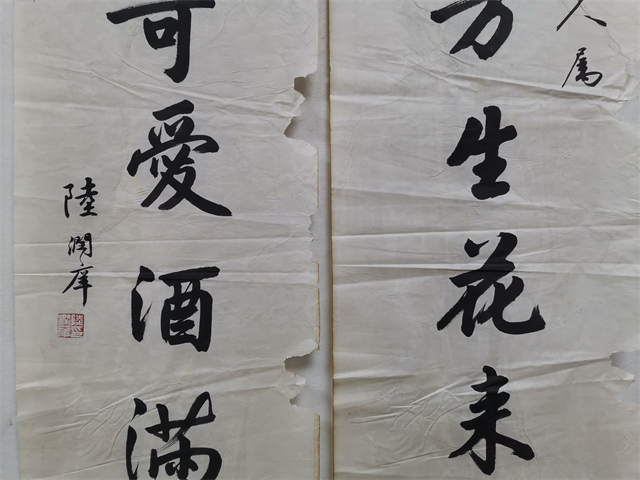 人属
方生花来
可愛酒滿
陸潤庠